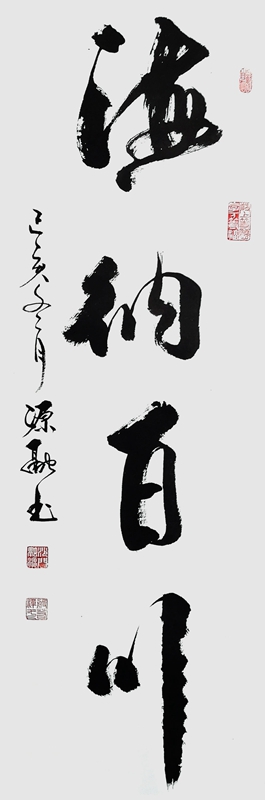 海納百川
己亥冬月
源融书